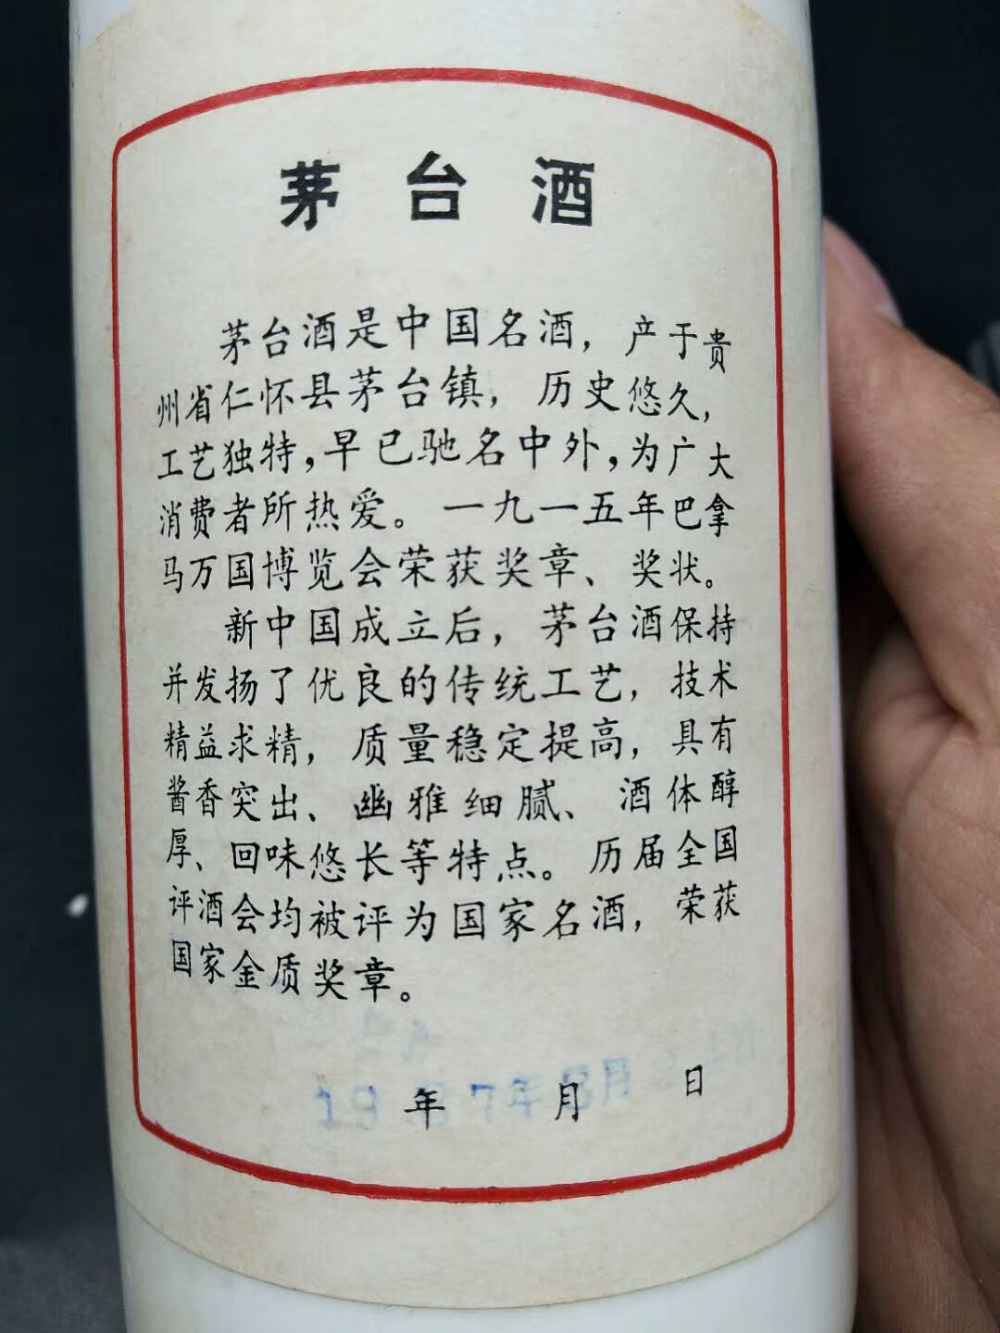 茅台酒
茅台酒是中国名酒，产于贵
州省仁怀县茅台镇，历史悠久，
工艺独特，早已驰名中外，为广大
消费者所热爱。一九一五年巴拿
马万国博览会荣获奖章、奖状。
新中国成立后，茅台酒保持
并发扬了优良的传统工艺，技术
精益求精，质量稳定提高，具有
酱香突出、幽雅细腻、酒体醇
厚、回味悠长等特点。历届全国
评酒会均被评为国家名酒，荣获
国家金质奖章。
19 年 7年 月 8月 日